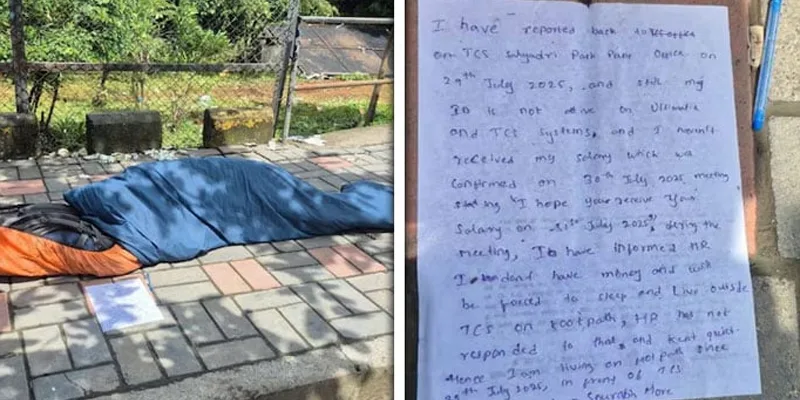 I have reported back to
on TCS Sahyadri Park Pune Office on
29th July 2025, and still my
ID is not active on Ultimatix
and TCS systems, and I haven't
received my salary which was
confirmed on 30th July 2025 meeting
stating "I hope you receive your
Salary on 31st July 2025", during the
meeting, I have informed HR
I dont have money and will
be forced to sleep and Live outside
TCS on footpath, HR has not
responded to that, and kept quiet.
Hence I am living on footpath since
29th July 2025, in front of TCS
Saurabh More